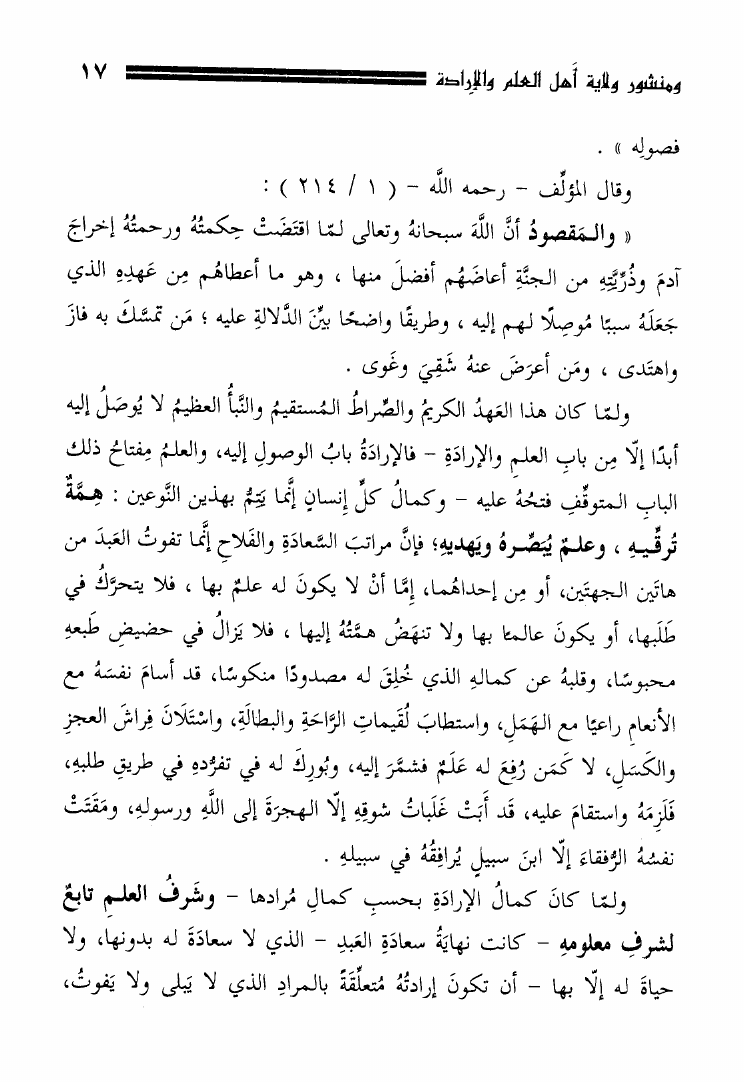 ومنشور ولاية أهل العلم والإرادة ١٧
فصولِه » .
وقال المؤلِّف – رحمه اللَّه – ( ١ / ٢١٤ ) :
« والـمَقصودُ أنَّ اللَّهَ سبحانهُ وتعالى لـمّا اقتَضَتْ حِكمتُهُ ورحمتُهُ إخراجَ
آدمَ وذُرِّيَّتِهِ من الـجنَّةِ أعاضَهُم أفضلَ منها ، وهو ما أعطاهُم مِن عَهدِهِ الذي
جَعَلَهُ سببًا مُوصِلًا لـهم إليه ، وطريقًا واضحًا بيِّنَ الدَّلالةِ عليه ؛ مَن تمسَّكَ به فازَ
واهتَدى ، ومَن أعرَضَ عنهُ شَقِيَ وغَوى .
ولـمّا كان هذا العَهدُ الكريمُ والصِّراطُ الـمُستقيمُ والنَّبأُ العظيمُ لا يُوصَلُ إليه
أبدًا إلّا مِن بابِ العلـمِ والإرادَةِ – فالإرادَةُ بابُ الوصولِ إليه، والعلـمُ مِفتاحُ ذلك
البابِ الـمتوقِّفِ فتحُهُ عليه – وكمالُ كلِّ إنسانٍ إنَّما يَتِمُّ بهذين النَّوعين : هِـمَّةٌ
تُرقِّـيـهِ ، وعلـمٌ يُبَصِّـرهُ ويَهديهِ؛ فإنَّ مراتبَ السَّعادَةِ والفَلاحِ إنَّما تفوتُ العَبدَ من
هاتَين الـجهتَين، أو مِن إحداهُما، إمَّا أنْ لا يكونَ له علـمٌ بها ، فلا يتحرَّكُ في
طَلَبها، أو يكونَ عالـمًا بها ولا تنهَضُ همَّتُهُ إليها ، فلا يَزالُ في حضيضِ طَبعهِ
محبوسًا، وقلبهُ عن كمالهِ الذي خُلِقَ له مصدودًا منكوسًا، قد أسامَ نفسَهُ مع
الأنعامِ راعيًا مع الـهَمَلِ، واستطابَ لُقَيماتِ الرَّاحَةِ والبطالَةِ، واسْتَلَانَ فِراشَ العجزِ
والكَسَلِ، لا كَمَن رُفِعَ له عَلَمٌ فشمَّرَ إليه، وبُورِكَ له في تفرُّدهِ في طريقِ طلبهِ،
فَلَزِمَهُ واستقامَ عليه، قَد أَبَتْ غَلَباتُ شوقِهِ إلّا الـهجرَةَ إلى اللَّهِ ورسولهِ، ومَقَتَتْ
نفسُهُ الرُّفقاءَ إلّا ابنَ سبيلٍ يُرافِقُهُ في سبيلهِ .
ولـمّا كانَ كمالُ الإرادَةِ بـحسبِ كمالِ مُرادها – وشَرفُ العلـمِ تابعٌ
لشرفِ معلومهِ – كانت نهايَةُ سعادَةِ العَبدِ – الذي لا سعادَةَ له بدونها، ولا
حياةَ له إلّا بها – أن تكونَ إرادتُهُ مُتعلِّقَةً بالمرادِ الذي لا يَبلى ولا يَفوتُ،